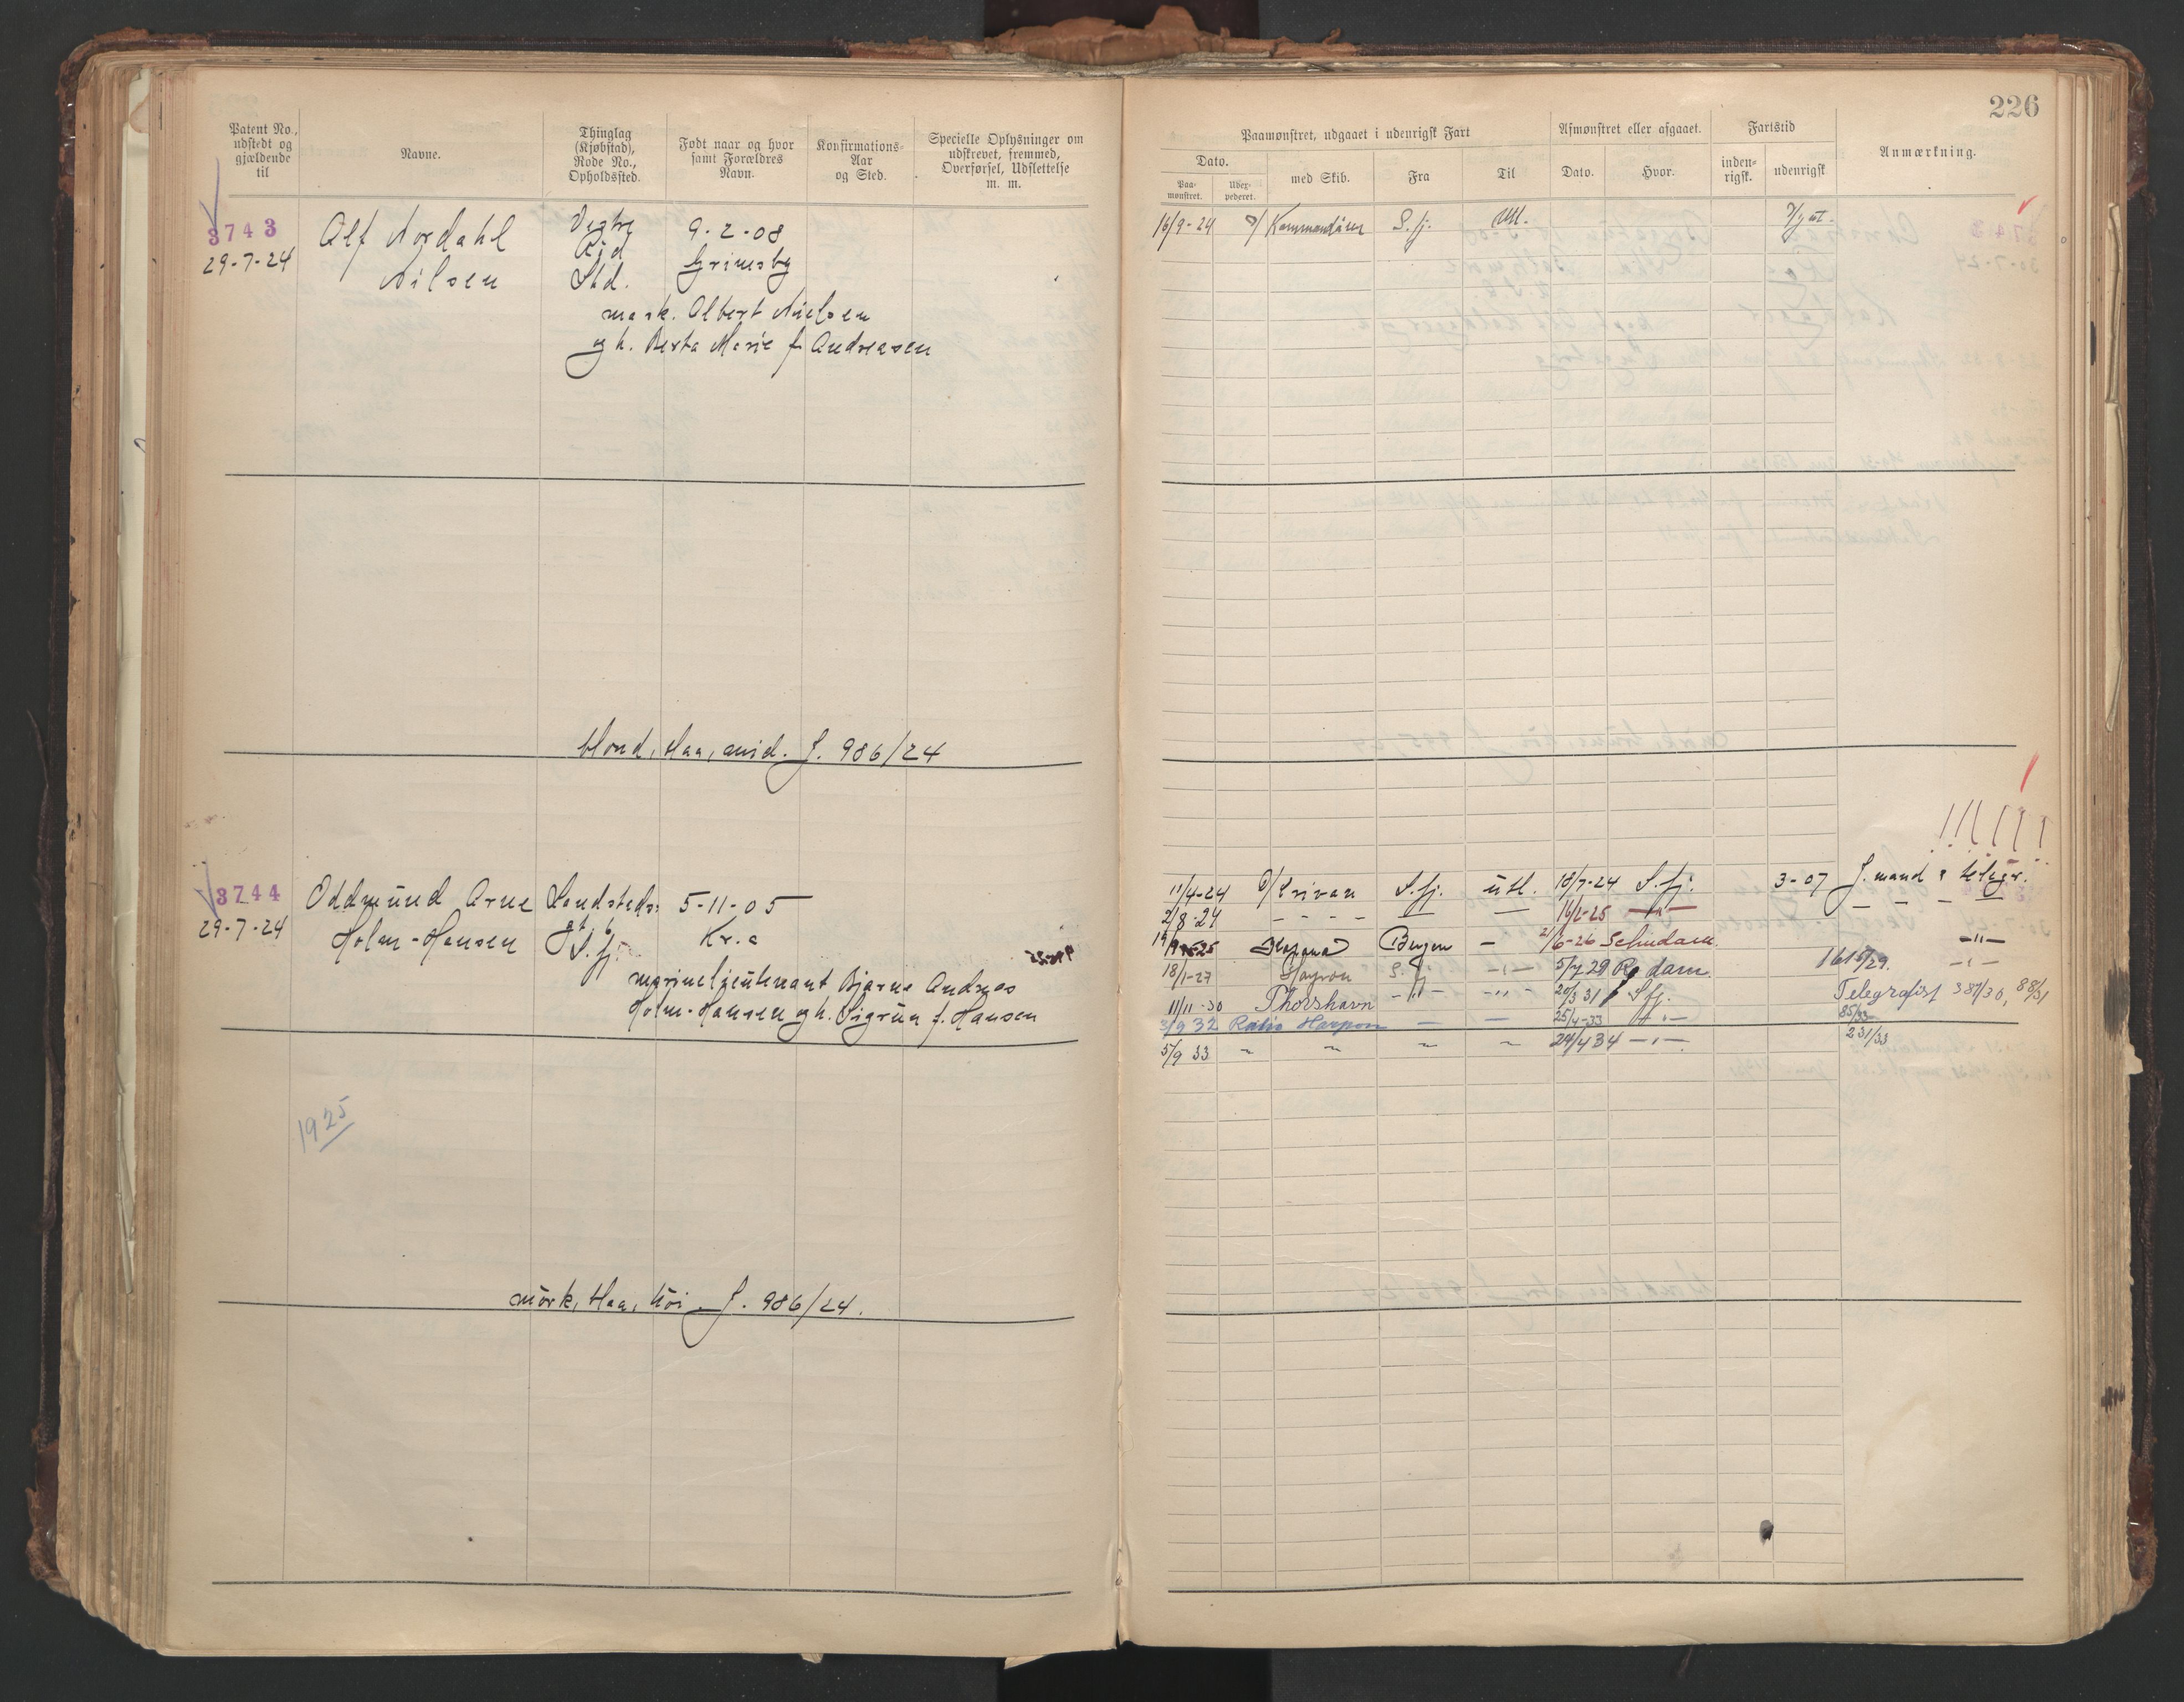 226
Patent No., udstedt og gjældende til
Navne.
Thinglag (Kjøbstad), Rode No., Opholdssted.
Født naar og hvor samt Forældres Navn.
Konfirmations-Aar og Sted.
Specielle Oplysninger om udskrevet, fremmed, Overførsel, Udslettelse m. m.
Paamønstret, udgaaet i udenrigsk Fart
Afmønstret eller afgaaet.
Fartstid
Anmærkning.
Dato.
Paa-mønstret.
med Skib.
Fra
Til
Dato.
Hvor.
inden-rigsk.
udenrigsk
3743
29-7-24
Alf Nordahl
Nilsen
Std.
9-2-08
Grimsby
mask. Albert Nielsen
og h. Berta Marie f. Andreasen
16/9-24 Kommandören S.fj. utl.
blond, blaa, mid. J. 986/24
3744
29-7-24
Oddmund Arne
Holm-Hansen
Landsteds
gt. 6
S.fj.
5-11-05
Kr.a
marinelieutenant Bjarne Andreas
Holm-Hansen og h. Sigrun f. Hansen
11/4-24 S.fj. utl. 18/7-24 S.fj. 3-07 J. mand & telegr.
2/8-24 - - - - — — 16/2-25 —"—
Bergen — 2/6-26 Schiedam. —"—
18/1-27 S.fj —"— 5/7 29 R dam. 161/29. —"—
11/11-30 Thorshavn —"— —"— 20/3 31 S.fj. Telegrafist 387/30, 88/31
3/9 32 Ratie Harpon — — 25/4-33 —"— 85/33
5/9 33 " " " " 24/4 34 —"— 231/33
1925
mörk, blaa, höi J. 986/24.